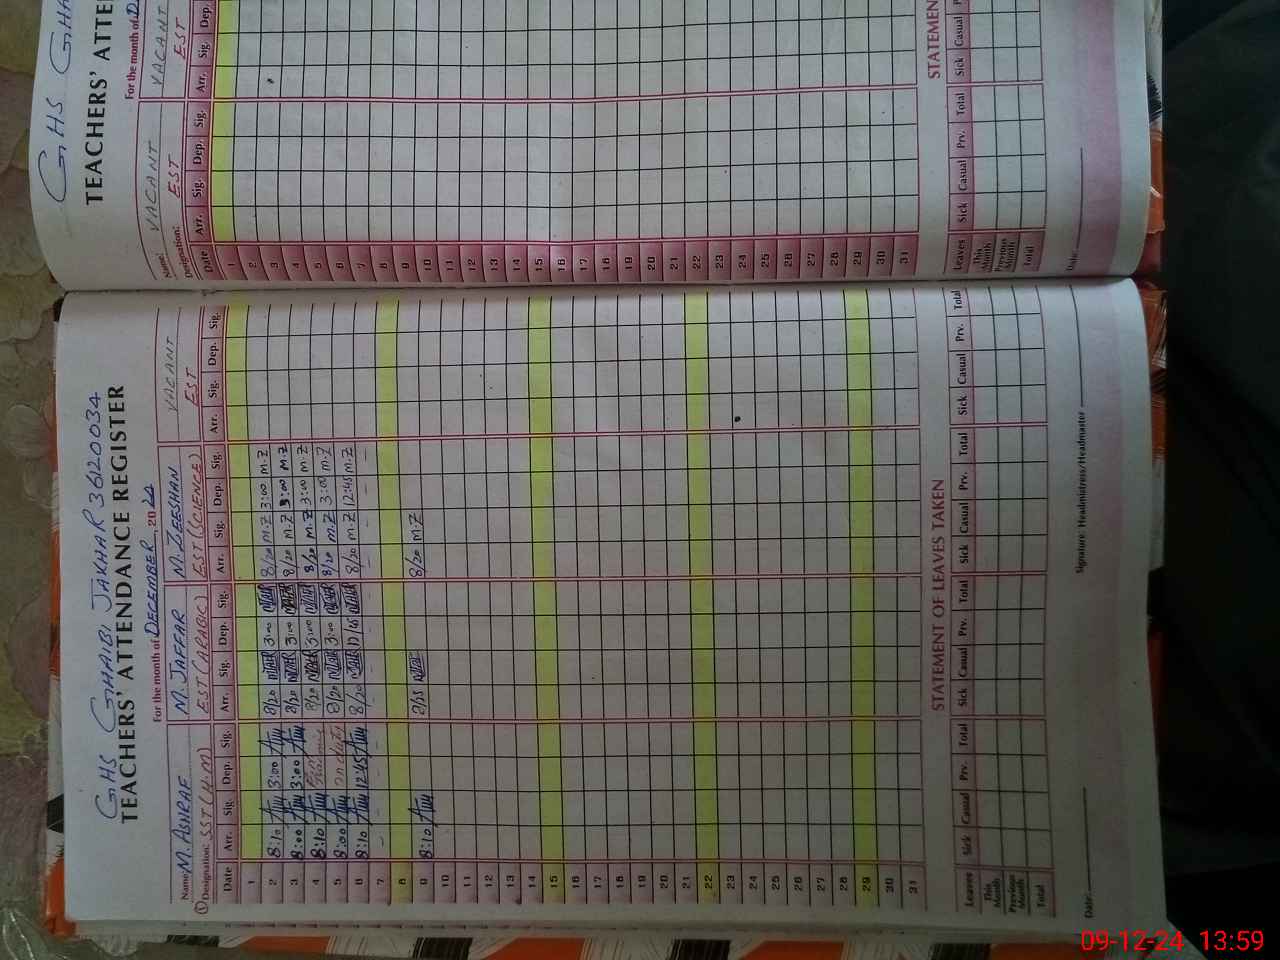 GHS GHAIBI JAKHAR 36120034
TEACHERS' ATTENDANCE REGISTER
For the month of DECEMBER, 2024
Name: M. ASHRAF M. JAFFAR M. ZEESHAN VACANT
① Designation: SST (H.M) EST (ARABIC) EST (SCIENCE) EST
Date Arr. Sig. Dep. Sig. Arr. Sig. Dep. Sig. Arr. Sig. Dep. Sig. Arr. Sig. Dep. Sig.
1
2 8:10 3:00 8/20 3:00 8/20 M.Z 3:00 M.Z
3 8:00 3:00 8/20 3:00 8/20 M.Z 3:00 M.Z
4 8:10 8/20 3:00 8/20 M.Z 3:00 M.Z
5 8:00 on duty 8/20 3:00 8/20 M.Z 3:00 M.Z
6 8:10 12:45 8/20 12/45 8/20 M.Z 12:45 M.Z
7
8
9 8:10 8/25 8/20 M.Z
10
11
12
13
14
15
16
17
18
19
20
21
22
23
24
25
26
27
28
29
30
31
STATEMENT OF LEAVES TAKEN
Leaves Sick Casual Prv. Total Sick Casual Prv. Total Sick Casual Prv. Total Sick Casual Prv. Total
This Month
Previous Month
Total
Date: Signature: Headmistress/Headmaster
GHS GHA
TEACHERS' ATTE
For the month of D
Name: VACANT VACANT
Designation: EST EST
Date Arr. Sig. Dep. Sig. Arr. Sig. Dep.
1
2
3
4
5
6
7
8
9
10
11
12
13
14
15
16
17
18
19
20
21
22
23
24
25
26
27
28
29
30
31
STATEMEN
Leaves Sick Casual Prv. Total Sick Casual P
This Month
Previous Month
Total
Date:
09-12-24 13:59